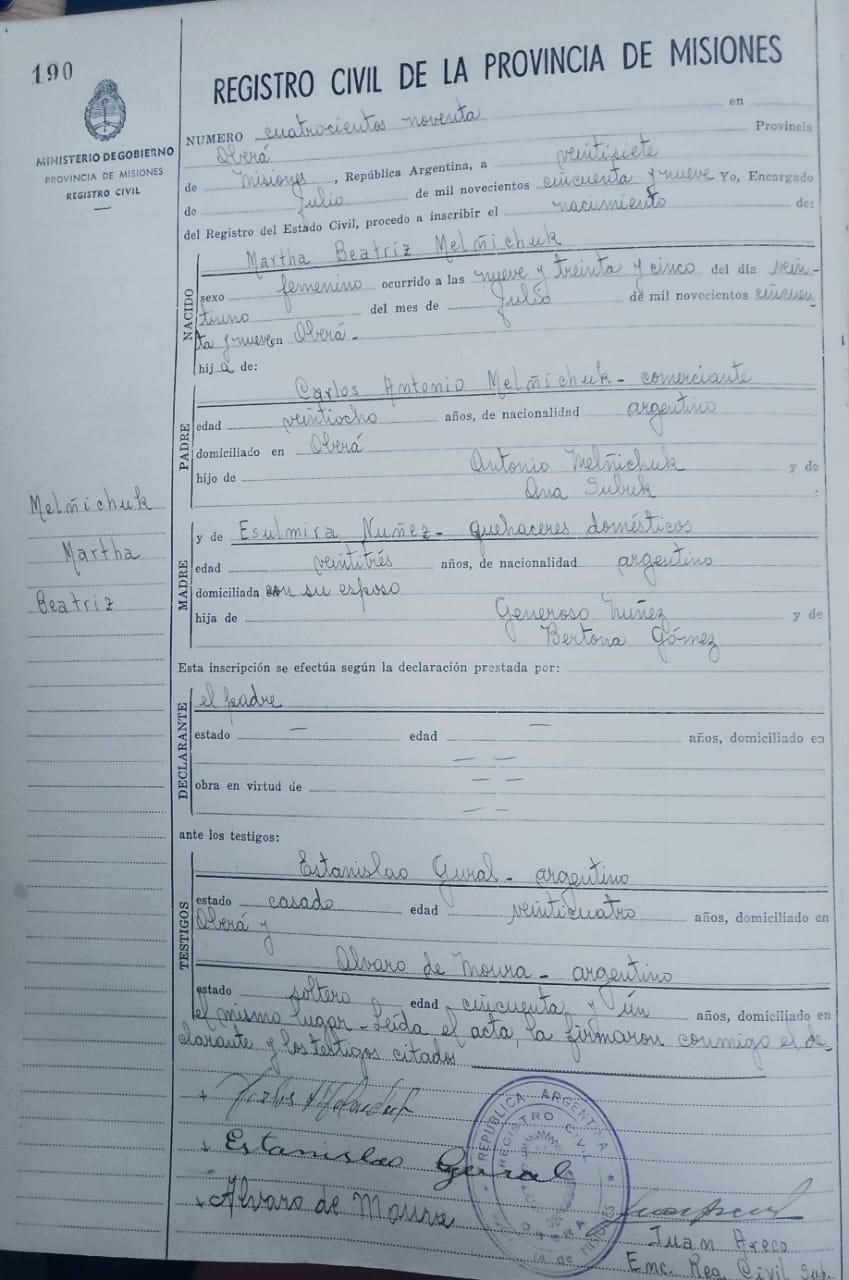 190
MINISTERIO DE GOBIERNO
PROVINCIA DE MISIONES
REGISTRO CIVIL
REGISTRO CIVIL DE LA PROVINCIA DE MISIONES
NUMERO cuatrocientos noventa en
Oberá Provincia
de Misiones, República Argentina, a veintisiete
de Julio de mil novecientos cincuenta y nueve Yo, Encargado
del Registro del Estado Civil, procedo a inscribir el nacimiento de:
NACIDO
Martha Beatriz Melñichuk
sexo femenino ocurrido a las nueve y treinta y cinco del día vein-
tiuno del mes de Julio de mil novecientos cincuen
ta y nueve en Oberá.-
hija de:
PADRE
Carlos Antonio Melñichuk - comerciante
edad veintiocho años, de nacionalidad argentino
domiciliado en Oberá
hijo de Antonio Melñichuk y de
Ana Subuk :
Melñichuk
Martha
Beatriz
MADRE
y de Esulmira Nuñez - quehaceres domésticos
edad veintitrés años, de nacionalidad argentino
domiciliada con su esposo
hija de Generoso Nuñez y de
Bertona Gómez
Esta inscripción se efectúa según la declaración prestada por:
DECLARANTE
el padre
estado — edad — años, domiciliado en
— —
obra en virtud de — —
— —
ante los testigos:
TESTIGOS
Estanislao Gural - argentino
estado casado edad veinticuatro años, domiciliado en
Oberá y
Alvaro de Moura - argentino
estado soltero edad cincuenta y un años, domiciliado en
el mismo lugar - Leída el acta, la firmaron conmigo el de-
clarante y los testigos citados
Estanislao Gural
Alvaro de Moura
REPUBLICA ARGENTINA
REGISTRO CIVIL
OBERA
DE MISIONES
Juan Areco
Enc. Reg. Civil Sub.